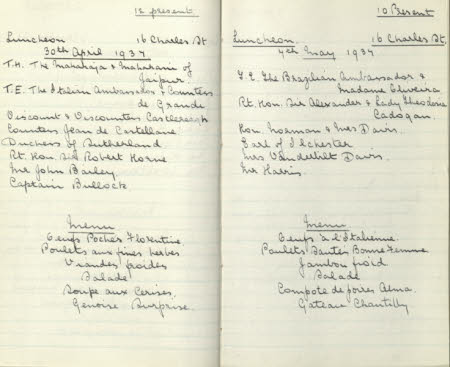 12 present
Luncheon 16 Charles St.
30th April 1937
T.H. The Maharaja & Maharanin of
Jaipur.
T.E. The Italian Ambassador & Countess
de Grande
Viscount & Viscountess Castlereagh
Countess Jean de Castellane
Duchess of Sutherland
Rt. Hon. Sir Robert Horne
Mr John Barley
Captain Bullock
Menu
Oeufs Pochés Florentine
Poulets aux fines herbes
Viandes froides
Salade
Soupe aux Cerises
Genoise Surprise.
10 Present
Luncheon. 16 Charles St.
4th May 1937
T.E. The Brazilian Ambassador &
Madame Oliveira
Rt. Hon. Sir Alexander & Lady Theodora
Cadogan.
Hon. Norman & Mrs Davis.
Earl of Ilchester
Mrs Vanderbilt Davis.
Mr Harris.
Menu
Oeufs à l'Italienne.
Poulets Sautés Bonne Femme
Jambon froid
Salade
Compote de poires Alma.
Gateau Chantilly